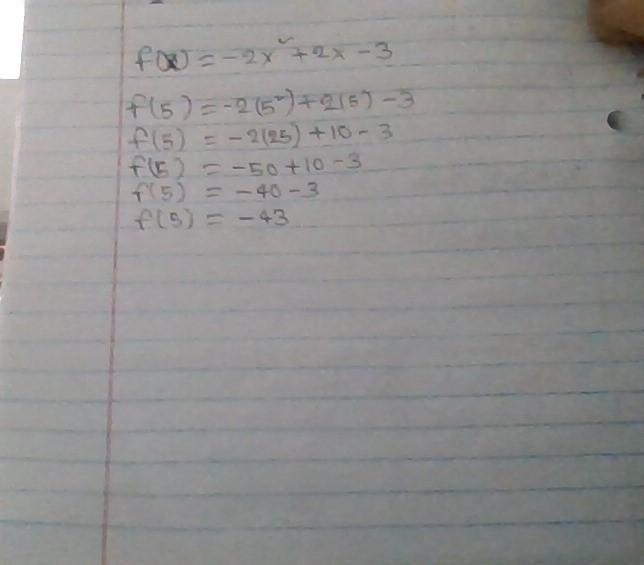 f(x) = -2x² + 2x - 3
f(5) = -2(5²) + 2(5) - 3
f(5) = -2(25) + 10 - 3
f(5) = -50 + 10 - 3
f(5) = -40 - 3
f(5) = -43